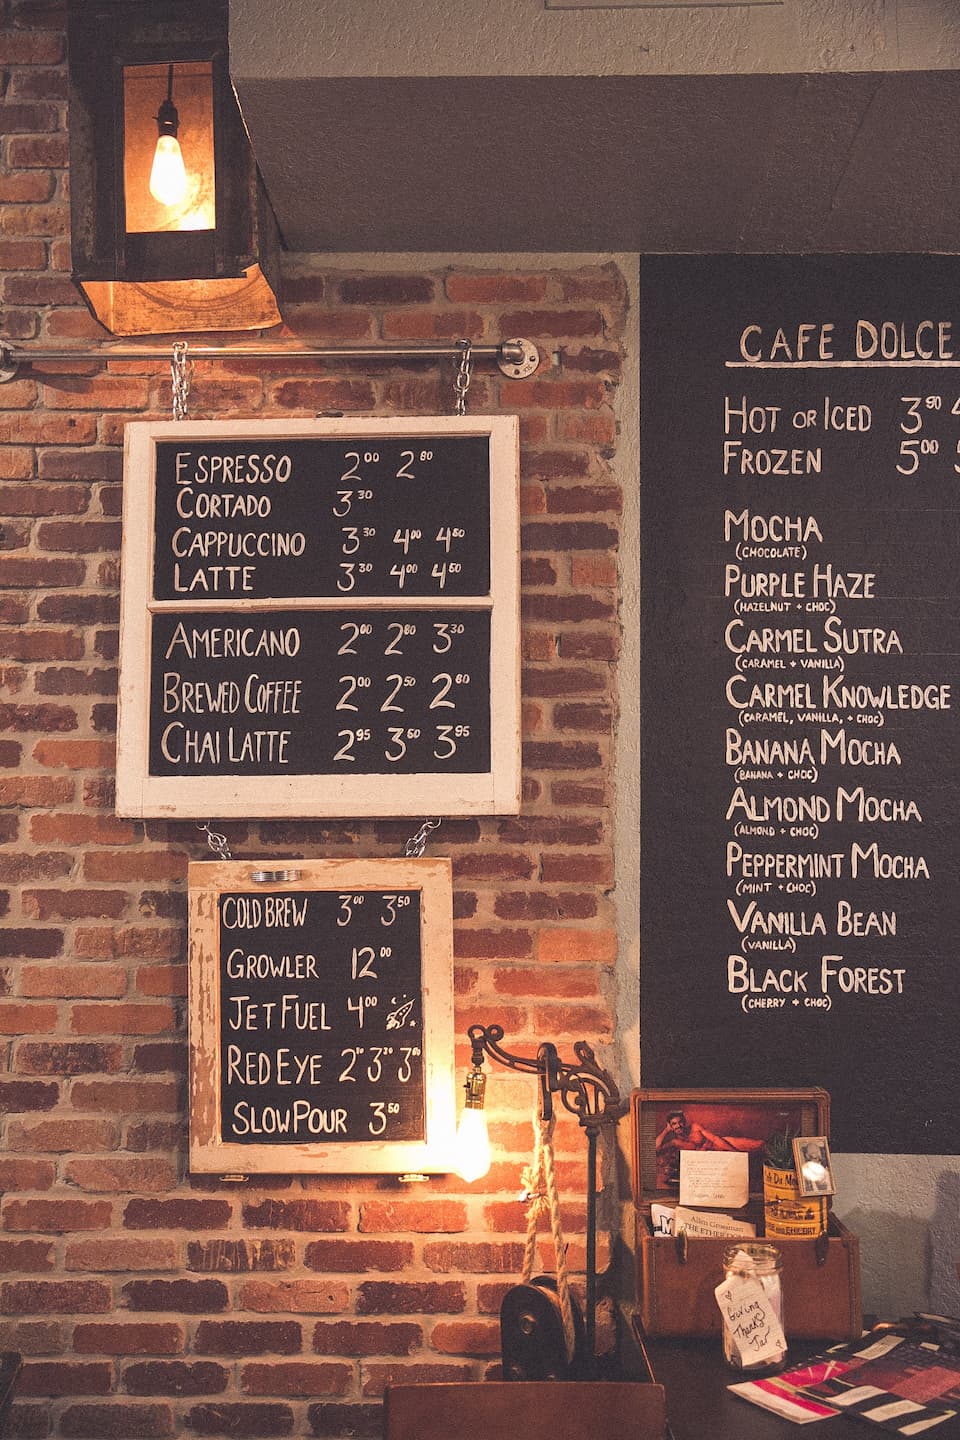 ESPRESSO 2.00 2.80
CORTADO 3.30
CAPPUCCINO 3.30 4.00 4.60
LATTE 3.30 4.00 4.60
AMERICANO 2.00 2.80 3.30
BREWED COFFEE 2.00 2.50 2.80
CHAI LATTE 2.95 3.60 3.95
COLD BREW 3.00 3.50
GROWLER 12.00
JET FUEL 4.00
RED EYE
SLOW POUR 3.50
CAFE DOLCE
HOT OR ICED 3.90
FROZEN 5.00
MOCHA
(CHOCOLATE)
PURPLE HAZE
(HAZELNUT + CHOC)
CARMEL SUTRA
(CARAMEL + VANILLA)
CARMEL KNOWLEDGE
(CARAMEL, VANILLA, + CHOC)
BANANA MOCHA
(BANANA + CHOC)
ALMOND MOCHA
(ALMOND + CHOC)
PEPPERMINT MOCHA
(MINT + CHOC)
VANILLA BEAN
(VANILLA)
BLACK FOREST
(CHERRY + CHOC)
Giving
Thanks
Jar